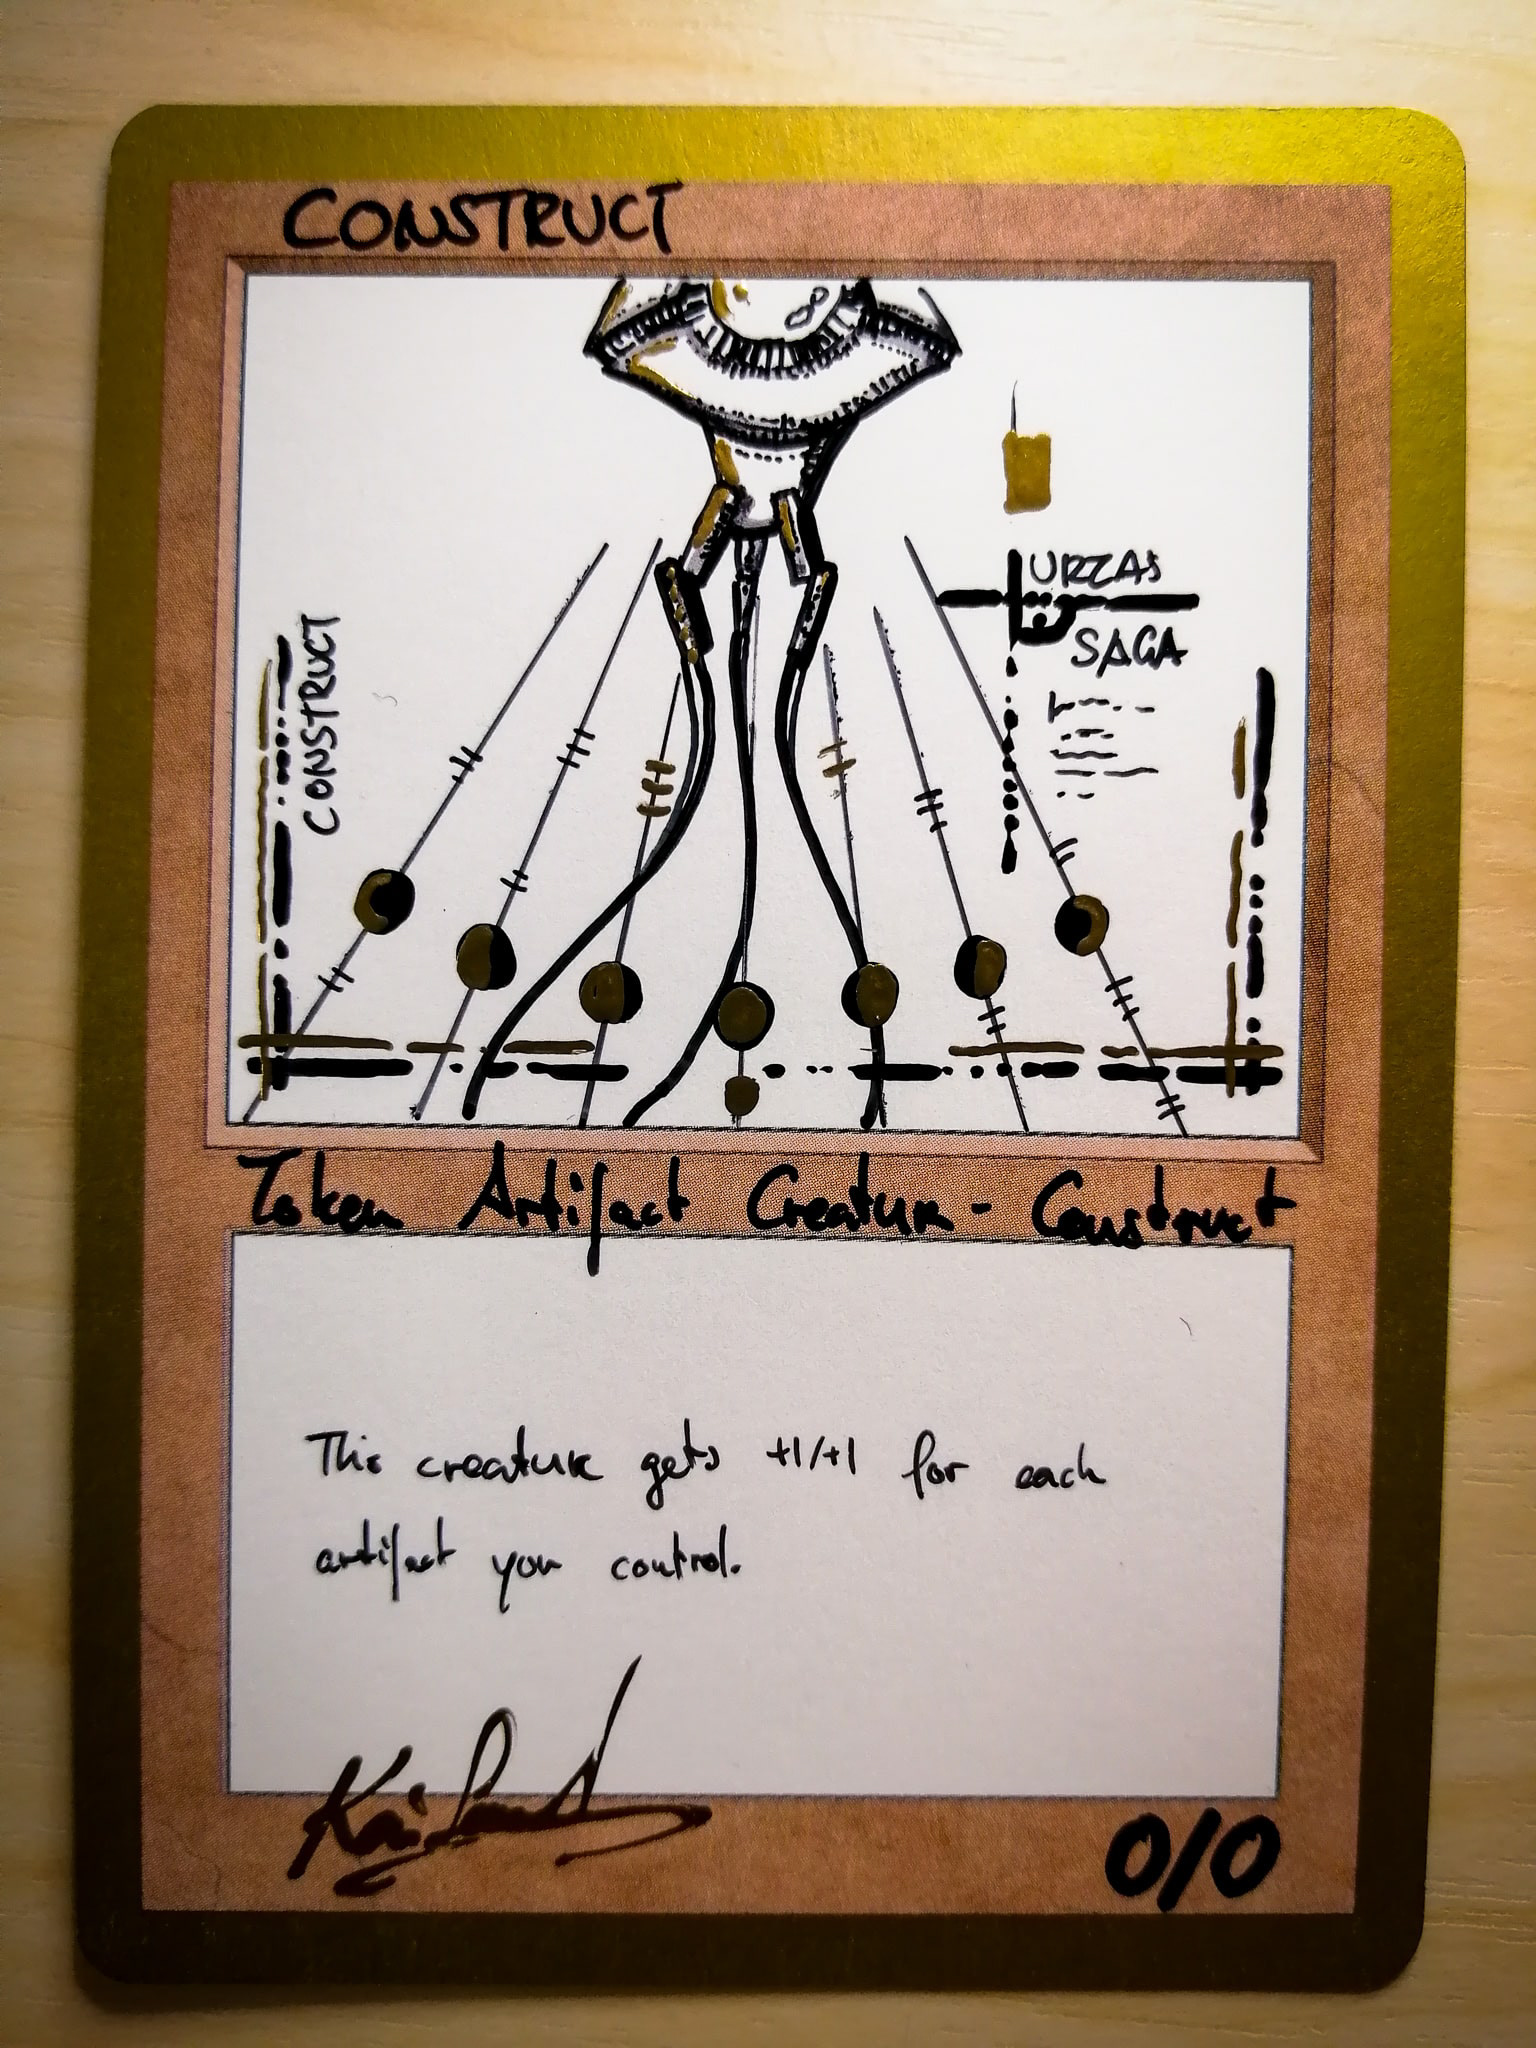 CONSTRUCT
CONSTRUCT
URZAS
SAGA
Token Artifact Creature - Construct
This creature gets +1/+1 for each
artifact you control.
0/0